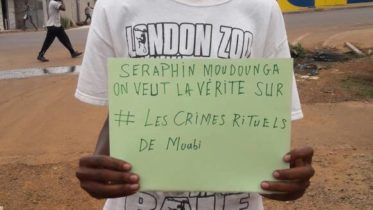 LONDON ZOO
SERAPHIN MOUDOUNGA
ON VEUT LA VÉRITE SUR
# LES CRIMES RITUELS
DE Muabi